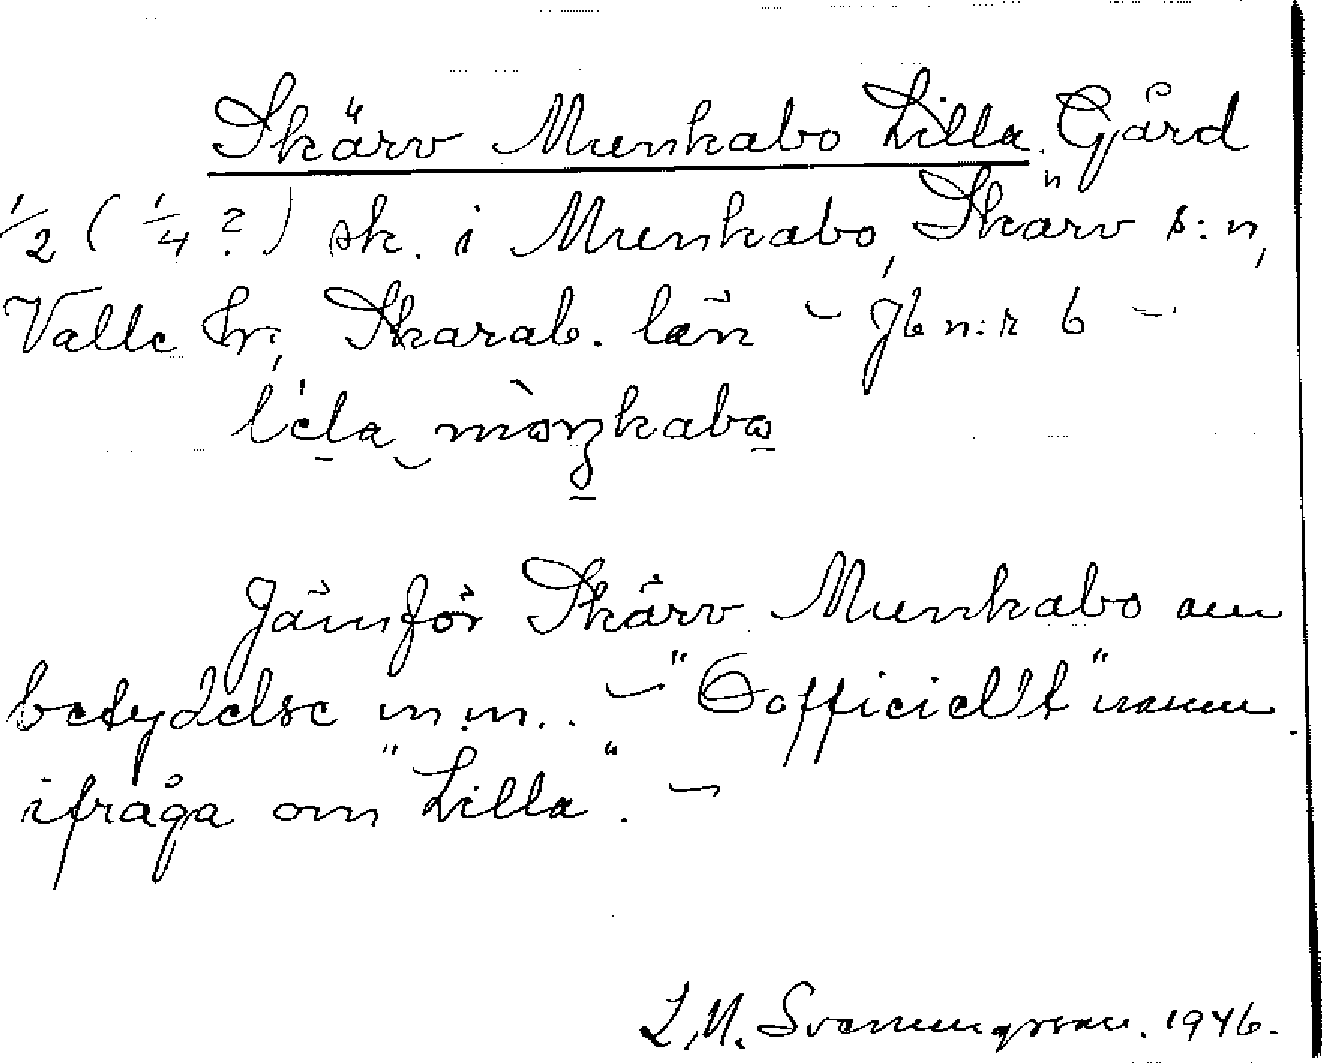 Skärv Munkabo Lilla. Gård
1/2 (1/4 ?) sk. i Munkabo, Skärv s:n,
Valle hd, Skarab. län – Jb n:r 6 –
Jämför Skärv Munkabo om
betydelse m.m.. – "Oofficiellt" namn
ifråga om "Lilla". –
L.M. Svenungsson. 1946.